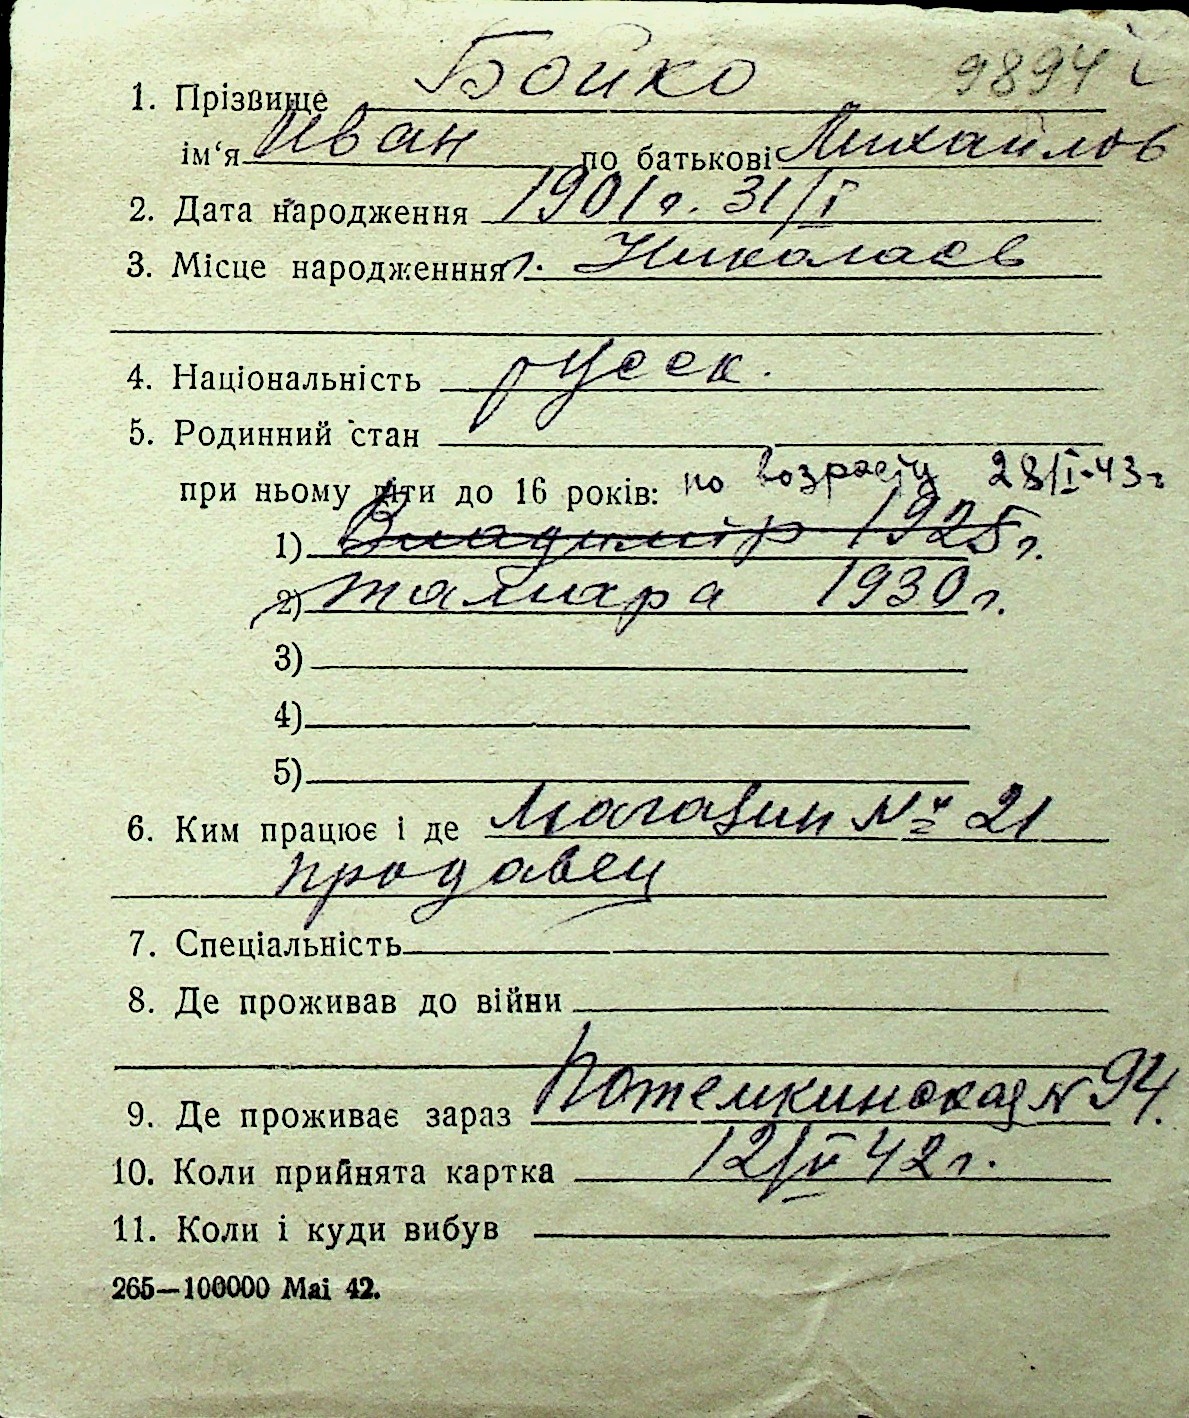 9894
1. Прізвище Бойко
ім‘я Иван по батькові Михайлов
2. Дата народження 1901 г. 31/I
3. Місце народженння г. Николаев
4. Національність русск.
5. Родинний стан
при ньому діти до 16 років: по возрасту 28/I-43г
1) Владимир 1925г.
2) Тамара 1930г.
3)
4)
5)
6. Ким працює і де Магазин № 21
продавец
7. Спеціальність
8. Де проживав до війни
9. Де проживає зараз Потемкинская N 94.
10. Коли прийнята картка 12/V 42г.
11. Коли і куди вибув
265—100000 Mai 42.